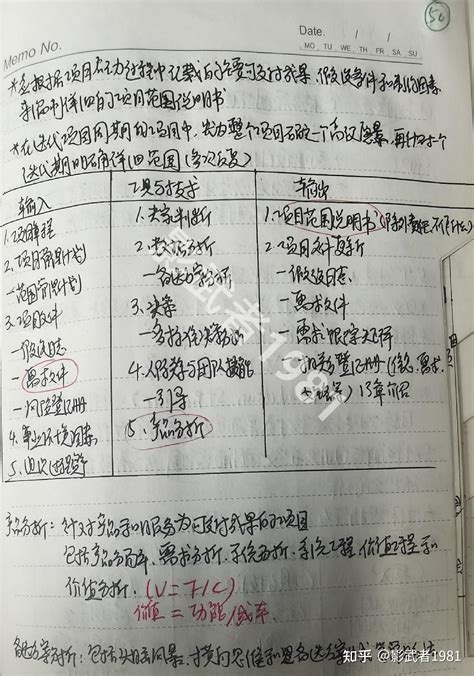 50
Memo No.
Date. / /
MO TU WE TH FR SA SU
*会根据项目启动过程中记载的主要可交付成果、假设条件和制约因素
来编制详细的项目范围说明书
*在迭代项目周期的项目中,先为整个项目确定一个高层愿景,再针对一个
迭代期明确详细范围
输入 工具与技术 输出
1.项目章程 1.专家判断 1.项目范围说明书
2.项目管理计划 2.数据分析 2.项目文件更新
-范围管理计划 -备选方案分析 -假设日志
3.项目文件 3.决策 -需求文件
-假设日志 -多标准决策分析 -需求跟踪矩阵
-需求文件 4.人际关系与团队技能 -相关方登记册
-风险登记册 -引导 13章介绍
4.事业环境因素 5.产品分析
5.组织过程资产
产品分析:针对产品和服务为可交付成果的项目
包括产品分解、需求分析、系统分析、系统工程、价值工程和
价值分析. (V=F/C)
价值=功能/成本
备选方案分析:包括头脑风暴、横向思维和
影武者1981
知乎 @影武者1981